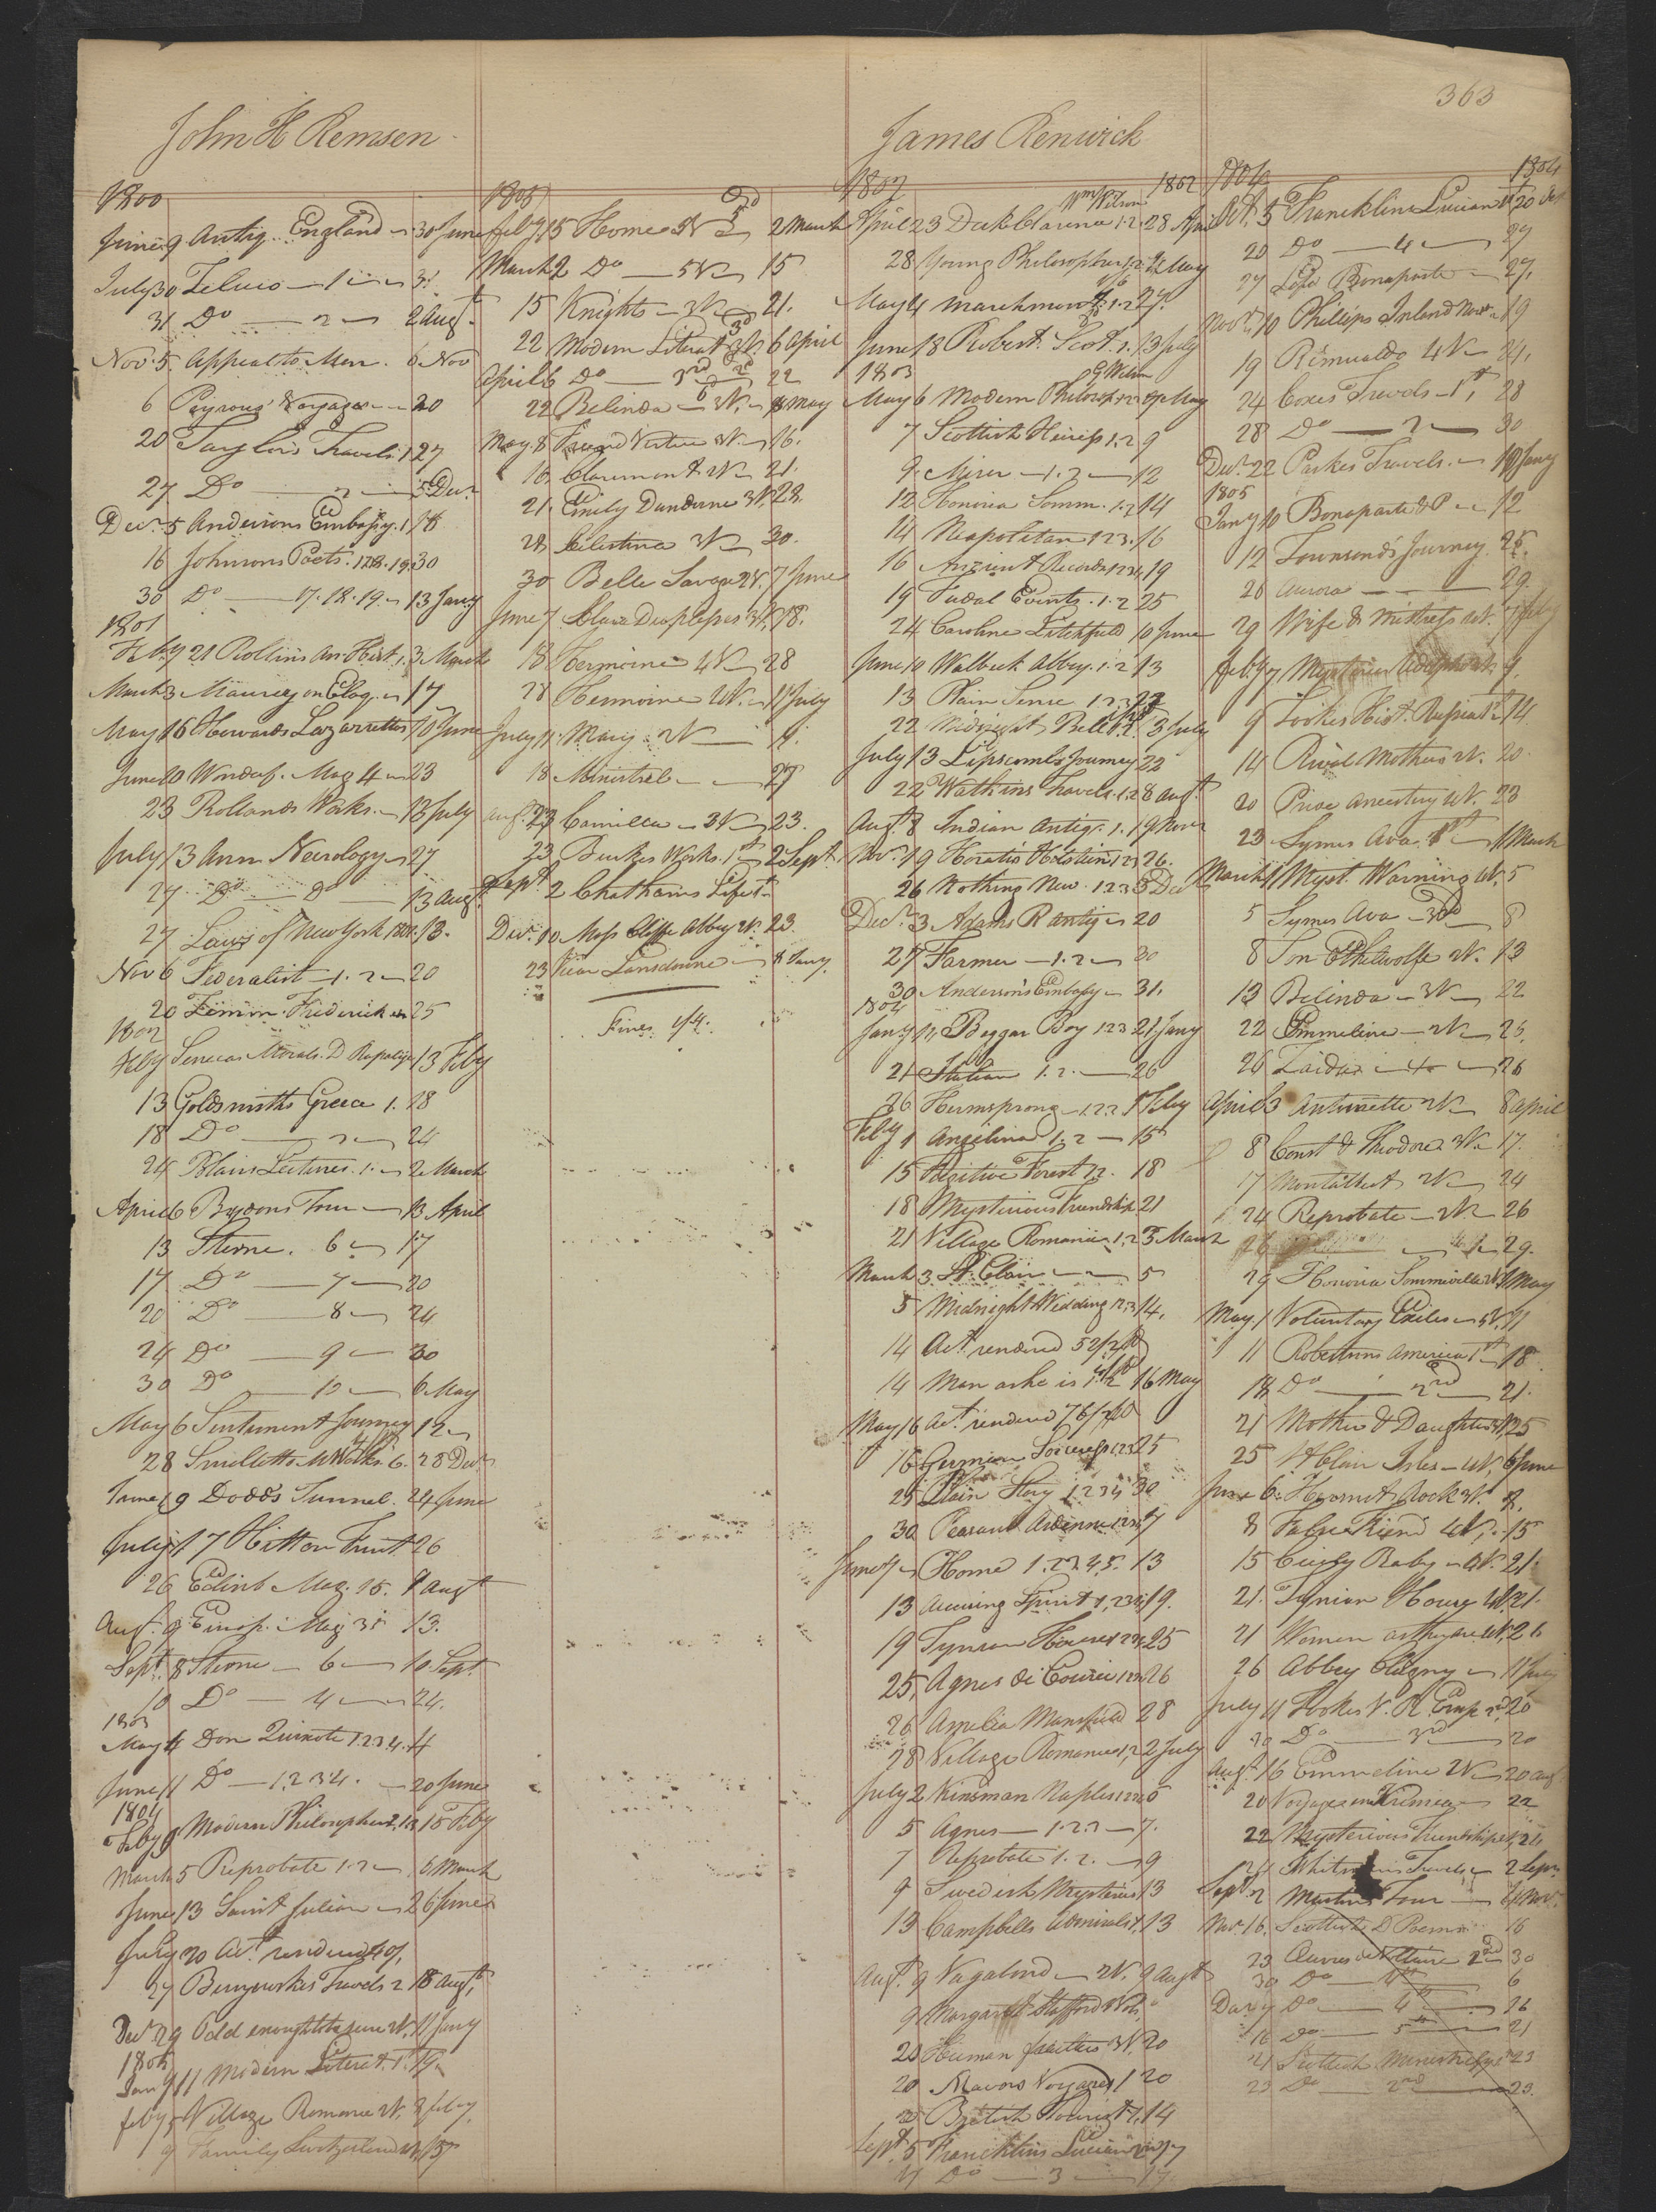 363
John H Remsen
1800
June 9 Antiq. England 30 June
July 30 Zeluco 1 31
31 Do 2 2 Augt
Nov. 5 Appeal to Men. 6 Nov
6 Peyrous Voyages 20
20 Taylors Travels. 1 27
27 Do 2 5 Decr
Decr 5 Andersons Embassy. 1 16
16 Johnsons Poets. 30
30 Do 17. 18. 19. 13 Jany
1801
Feby 21 Rollins An. Hist. 1. 3 March
March 3 Maurey on Eloq. 17
May 16 Howards Lazarrettos 10 June
June 10 Wonderf. Mag 4 23
23 Rollands Works. 13 July
July 13 Ann Necrology 27
27 Do Do 13 Augt
27 Laws of New York 13.
Nov 6 Federalist 1. 2 20
20 Zimm. Frederick 25
1802
Feby Senecas Morals. D Rapalye 13 Feby
13 Goldsmiths Greece 1. 18
18 Do 2 24
24 Blairs Lectures. 1. 2 March
April 6 Brydons Tour 13 April
13 Sterne. 6 17
17 Do 7 20
20 Do 8 24
24 Do 9 30
30 Do 10 6 May
May 6 Sentiment Journey 12
28 Smolletts Works. 6. 28 Decr
June 19 Dodd's Tunnel. 24 June
July 17 Hitt on Fruit 26
26 Edinb Mag. 15. 9 Augt
Augt. 9 Europ. Mag 31 13.
Sept. 8 Sterne 6 10 Sept
10 Do 4 24.
1803
May 4 Don Quixote 1 2 3 4. 11
June 11 Do 1. 2 3 4. 20 June
1804
Feby 9 Modern Philosophers 15 Feby
March 5 Reprobate 1. 2 6 March
June 13 Saint Julien 26 June
July 20 Act rendered 40/.
27 Benyowskis Travels 2 18 Augt
Decr 29 Odd enough to be sure 2V. 11 Jany
1805
Jany 11 Modern Literat. 1.
feby 5 Village Romance 2V. 8 feby.
9 Family Switzerland
1805
feby 15 Home 5V 2d 2 March
March 2 Do 5V 15
15 Knights 3V 21.
22 Modern Literat 3V. 3d 6 April
April 6 Do 3rd 22
22 Belinda 3V. 8 May
May 8 Vice and Virtue 3V. 16.
16. Claremont 2V 21.
21. Emily Dundorne 3V. 28.
28 Celestina 3V 30.
30 Belle Savage 2V. 7 June
June 7 Clair Duplessis 18.
18 Hermoine 4V 28
28 Hermoine 4V. 11 July
July 11. Mary. 2V 18.
18 Minstrel 27
Augt. Camilla 3V 23.
23 Burkes Works. 1st 2 Sept
Sept 2 Chathams Life 1st
Decr. 10 Moss Cliffe Abbey 2V. 23.
23 Vicar Lansdowne 8 Jany.
Fines 1/4.
James Renwick
1802 1802
Wm Wilson
April 23 De la Clarence 1. 2 28 April
28 Young Philosopher May
May 4 Marchmont 1. 2 27.
June 18 Robert. Scot. 1. 13 July
1803 G Wilson
May 6 Modern Philosop May
7 Scottish Heiress 1. 2 9
9. Miser 1. 2 12
12 Honoria Somm. 1. 2 14
14 Neapolitan 1 2 3. 16
16 Ancient Records 1 2 3 4 19
19 Fudal Events. 1. 2 25
24 Caroline Litchfield 10 June
June 10 Walbeck Abbey. 1. 2 13
13 Plain Sense 1 2 3 22
22 Midnight Bell 3 July
July 13 Lipscombs Journey 22
22 Watkins Travels. 1. 2 8 Augt
Augt 8 Indian Antiq. 1. 19 Novr
Nov. 19 Horatio Holstein 1 2 3 26.
26 Nothing New 1 2 3 3 Dec
Decr. 3 Adams R Antiq 20
27 Farmer 1. 2 30
30 Andersons Embassy 31.
1804
Jany 11 Beggar Boy 1 2 3 21 Jany
21 Italian 1. 2. 26
26 Hermsprong 1. 2 3 1 Feby
Feby 1 Angelina 1. 2 15
15 Fugitive Forest 1 2. 18
18 Mysterious Friendship 21
21 Village Romance 1. 2 3 March
March 3 St. Clair 5
5 Midnight Wedding 1 2 3 14.
14 Act rendered 52/2
14 Man as he is 16 May
May 16 Act rendered 76/
16 German Sorceress 1 2 3 25
25 Plain Story 1 2 3 4 30
30 Peasant Ardenne 7
June 7 Home 1. 2 3 4 5. 13
13 Accusing Spirit 1. 2 3 4 19.
19 Tynian House 25
25. Agnes de Courci 26
26 Amelia Mansfield 28
28 Village Romance 1. 2 2 July
July 2 Kinsman Naples 5
5 Agnes 1. 2. 3 7.
7 Reprobate 1. 2. 9
9 Swedish Mysteries 13
13 Campbells Admirals 1. 13
Augt. 9 Vagabond 2V. 9 Augt
9 Margaret Stafford
20 Human frailties 3V. 20
20 Mavors Voyages 1 20
20 British Tourist 1. 14
Sept. 5 Francklins Lucian 17
17 Do 3 17
1804 1804
Oct. 5 Francklins Lucian 20 Oct
20 Do 4 27
27 Life Bonaparte 27.
Novr 10 Phillips Inland Navn 19
19 Romualdo 4V 24.
24 Coxes Travels 1st 28
28 Do 2 30
Decr. 22 Parkes Travels. 10 Jany
1805
Jany 10 Bonaparte & P 12
12 Townsends Journey 26.
26 Aurora 29.
29 Wife & Mistress 4V. 7 feby
feby 7 Mysterious 9.
9 Tookes Hist. Russia 1st 14
14 Rival Mothers 2V. 20
20 Prior Ancestry 4V. 23
23 Symes Ava 1st 1 March
March 1 Myst. Warning 4V. 5
5 Symes Ava 3d 8
8 Son Ethelwolfe 2V. 13
13 Belinda 3V 22
22 Emmeline 2V 26.
26 Zaida 4 26
April 3 Antoinette 2V 8 April
8 Const & Theodora 3V. 17.
17 Montalbert 2V 24
24 Reprobate 2V. 26
29.
29 Honoria Sommerville 1 May
May. 1 Voluntary Exiles 5V. 11
11 Robertsons America 1st 18
18 Do 2rd 21.
21 Mother & Daughter 25
25 St Clair Isles 4V. 6 June
June 6 Hermit Rock 3V. 8.
8 False Friend 4V. 15
15 Cuigly Baby 4V. 21.
21. Tynian House 4V. 21.
21 Women as they are 4V. 26
26 Abbey Clugny 11 July
July 11 Tookes V. R. Emp 2d 20
20 Do 3rd 20
Augt. 16 Emmeline 2V 20 Aug
20 Voyages in Krimea 22
22 Mysterious Friendship 24
24 Travels 2 Sepr
Sept 2 Tour 4 Nov.
Nov. 16. Scottish D Poems 16
23 Œuvres de Voltaire 2nd 30
30 Do 6
Do 4th 16
16 Do 5th 21
21 Scottish Minstrelsy 23
23 Do 2nd 23.